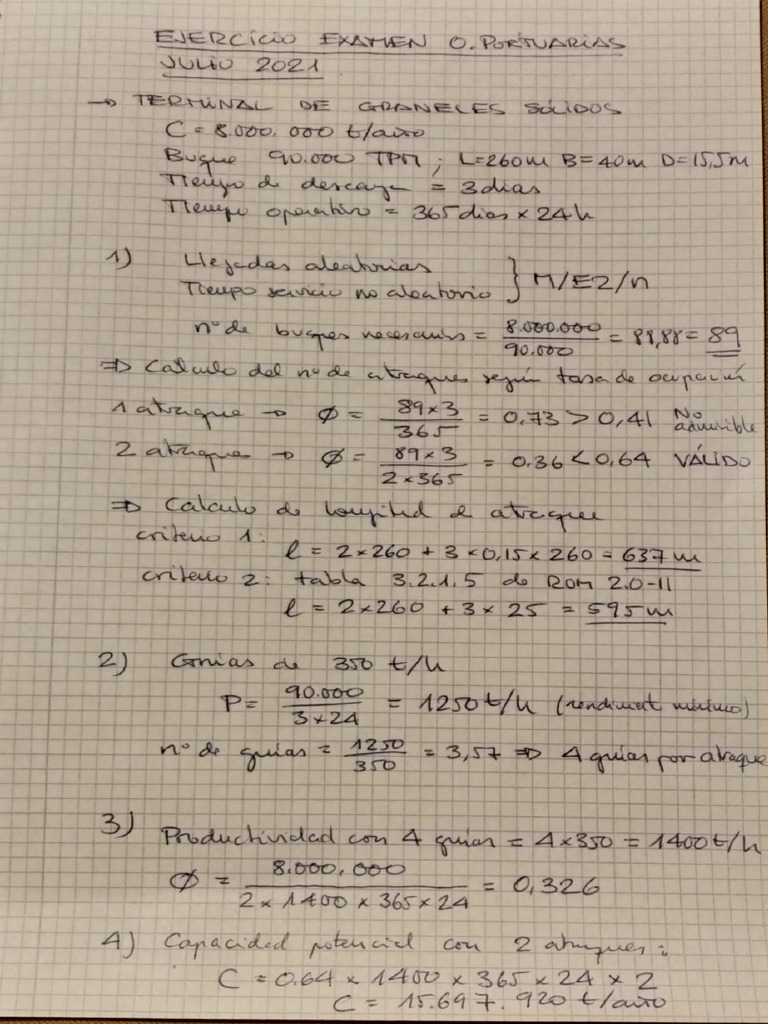 EJERCICIO EXAMEN O. PORTUARIAS
JULIO 2021
→ TERMINAL DE GRANELES SÓLIDOS
C = 8.000.000 t/año
Buque 90.000 TPM ; L=260m B=40m D=15,5m
Tiempo de descarga = 3 dias
Tiempo operativo = 365 dias × 24h
1) Llegadas aleatorias
Tiempo servicio no aleatorio } M/E2/n
nº de buques necesarios = 8.000.000 / 90.000 = 88,88 = 89
⇒ Calculo del nº de atraques según tasa de ocupación
1 atraque → Ø = 89×3 / 365 = 0,73 > 0,41 No admisible
2 atraque → Ø = 89×3 / 2×365 = 0.36 < 0,64 VÁLIDO
⇒ Calculo de longitud de atraque
criterio 1:
l = 2×260 + 3×0,15×260 = 637 m
criterio 2: tabla 3.2.1.5 de ROM 2.0-11
l = 2×260 + 3×25 = 595 m
2) Gruas de 350 t/h
P = 90.000 / 3×24 = 1250 t/h (rendimient mínimo)
nº de gruas = 1250 / 350 = 3,57 ⇒ 4 gruas por atraque
3) Productividad con 4 gruas = 4×350 = 1400 t/h
Ø = 8.000.000 / 2×1400×365×24 = 0,326
4) Capacidad potencial con 2 atraques:
C = 0.64 × 1400 × 365 × 24 × 2
C = 15.697.920 t/año